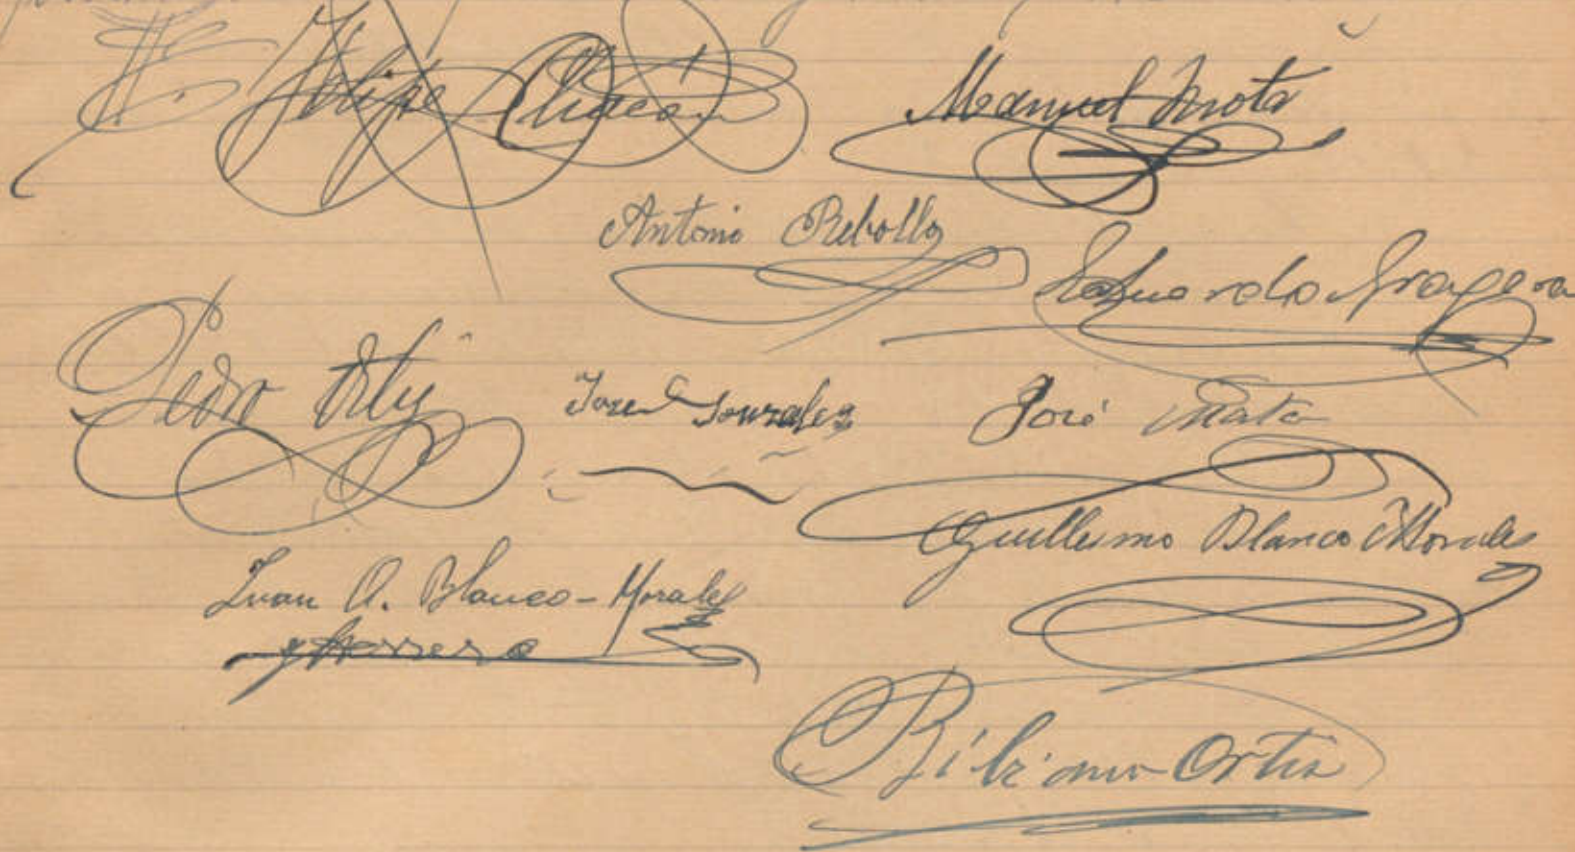 Felipe Chacón
Manuel Mota
Antonio Rebollo
Eduardo Gragera
Pedro Ortiz
Jose Gonzalez
José Mata
Guillermo Blanco Morales
Juan A. Blanco-Morales
y Herrera
Bibiano Ortiz